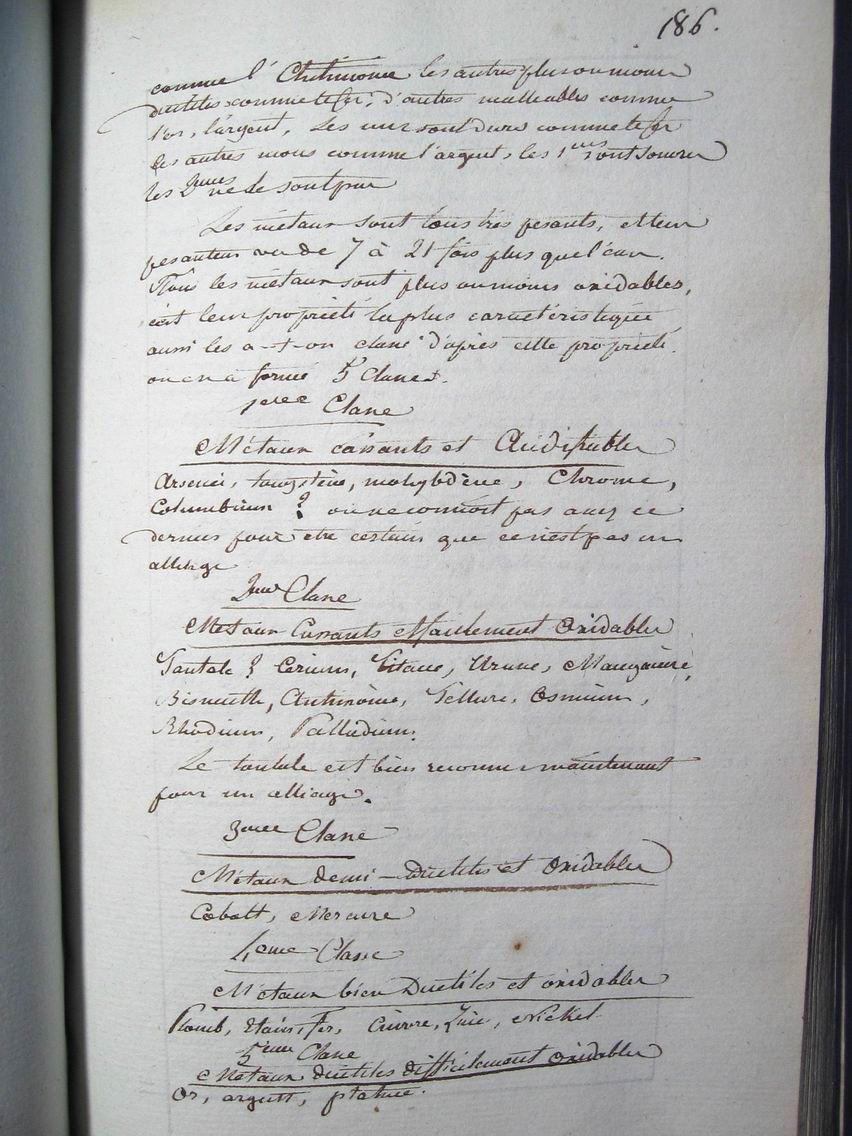 186.
comme l'Antimoine les autres plus ou moins
ductiles comme le fer, d'autres malleables comme
l'or, l'argent, Les uns sont durs comme le fer
les autres mous comme l'argent, les 1ers sont sonores
les 2emes ne le sont pas
Les métaux sont tous très pesants, et leur
pesanteur va de 7 à 21 fois plus que l'eau.
Tous les métaux sont plus ou moins oxidables,
c'est leur propriété la plus caractéristique
aussi les a-t-on classé d'après cette propriété.
on en a formé 5 Classes.
1ere Classe
Métaux cassants et Acidifiables
Arsenic, tungstène, molybdène, Chrome,
Columbium ? on ne connoit pas assez ce
dernier pour etre certain que ce n'est pas un
alliage
2eme Classe
Metaux Cassants et seulement Oxidables
Tantale ? Cerium, Titane, Urane, Manganèse,
Bismuth, Antimoine, Tellure, Osmium,
Rhodium, Palladium.
Le tantale est bien reconnu maintenant
pour un alliage.
3eme Classe
Métaux demi-Ductiles et Oxidables
Cobalt, Mercure
4eme Classe
Métaux bien Ductiles et oxidables
Plomb, Etain, Fer, Cuivre, Zinc, Nickel
5eme Classe
Métaux ductiles difficilement Oxidables
Or, argent, platine.